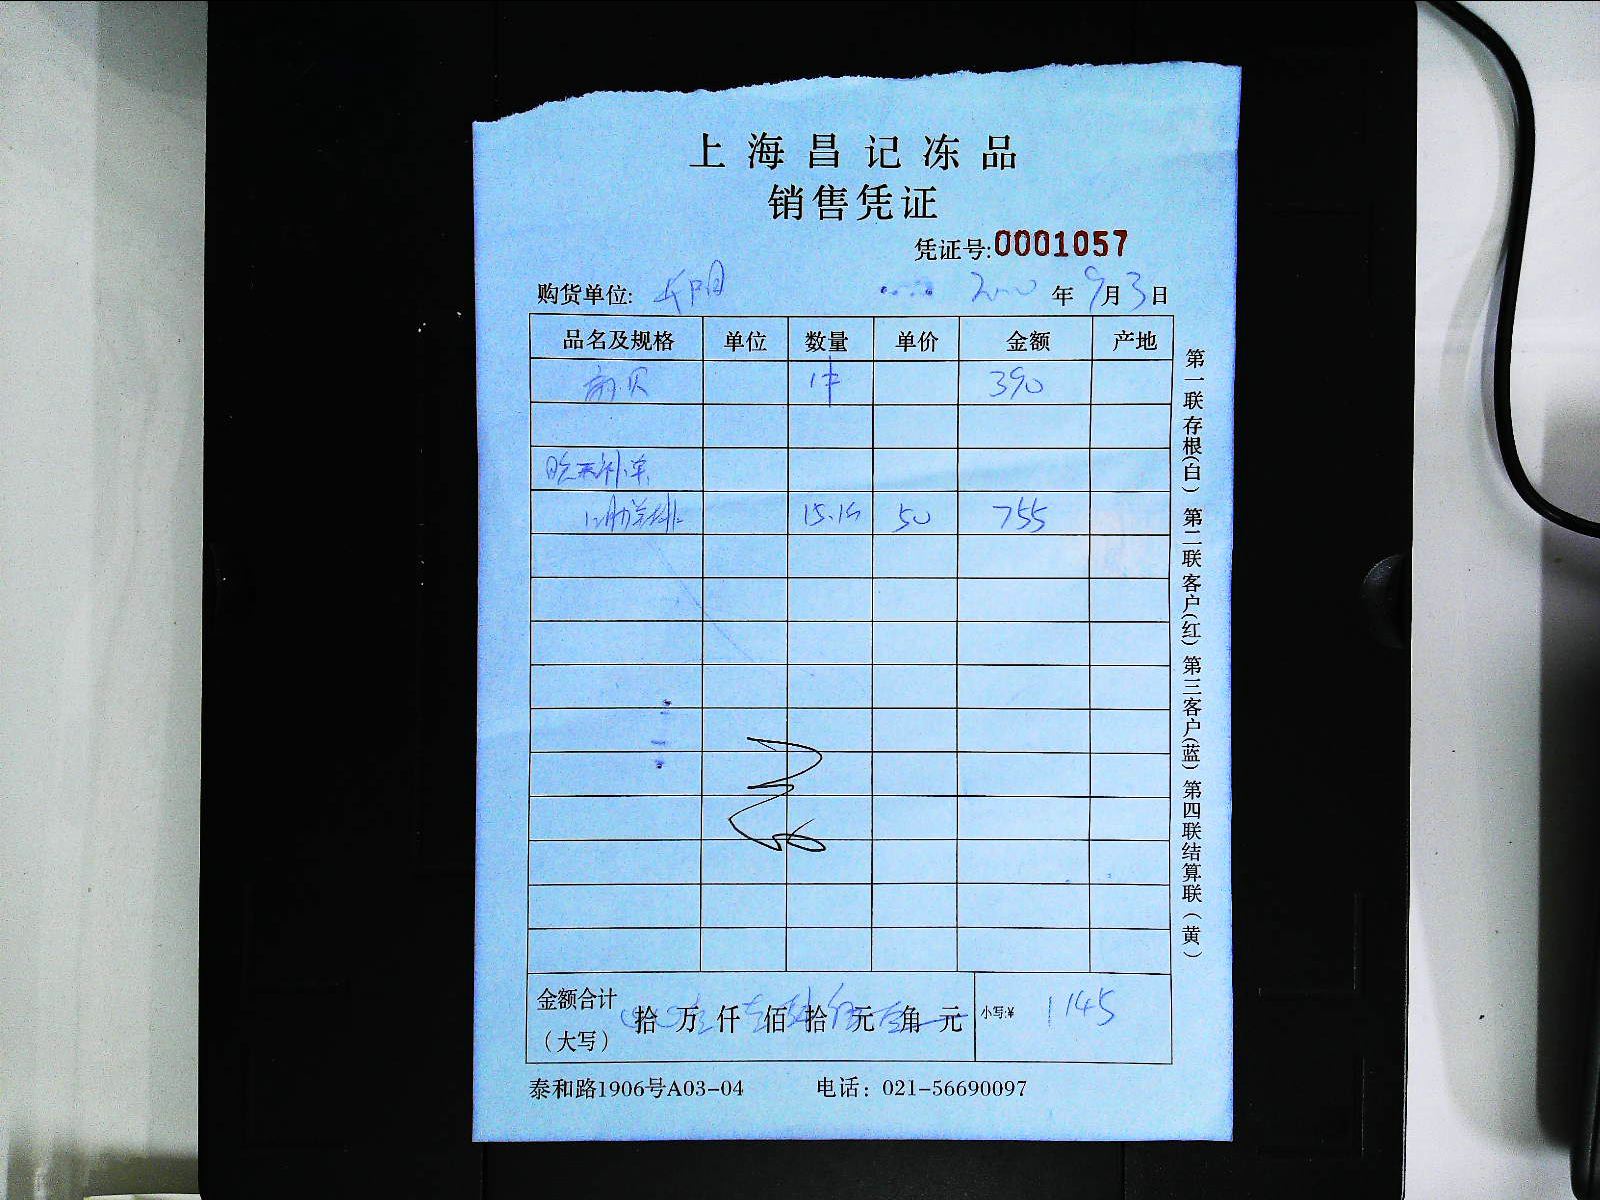 上海昌记冻品
销售凭证
凭证号:0001057
购货单位: 长阳 年 9月3日
品名及规格 单位 数量 单价 金额 产地
贝 1件 390
15.1 50 755
金额合计（大写） 拾 万 仟 佰 拾 元 角 元 小写:¥ 1145
泰和路1906号A03-04 电话：021-56690097
第一联存根(白) 第二联客户(红) 第三客户(蓝) 第四联结算联(黄)